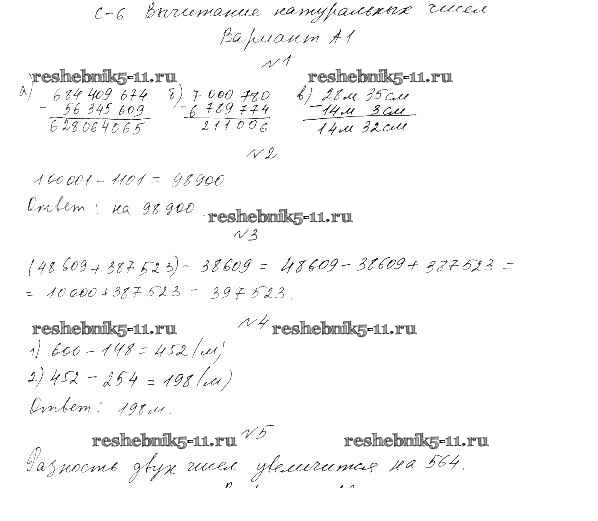 С-6 Вычитание натуральных чисел
Вариант А1
№1
reshebnik5-11.ru reshebnik5-11.ru
а) 684 409 674 б) 7 000 780 в) 28м 35см
- 56 345 609 - 6 789 774 - 14м 3см
628064065 211006 14м 32см
№2
100001 - 1101 = 98900
Ответ: на 98900
reshebnik5-11.ru
№3
(48609 + 387523) - 38609 = 48609 - 38609 + 387523 =
= 10000 + 387523 = 397523.
№4
reshebnik5-11.ru reshebnik5-11.ru
1) 600 - 148 = 452 (м)
2) 452 - 254 = 198 (м)
Ответ: 198м.
№5
reshebnik5-11.ru reshebnik5-11.ru
Разность двух чисел увеличится на 564.